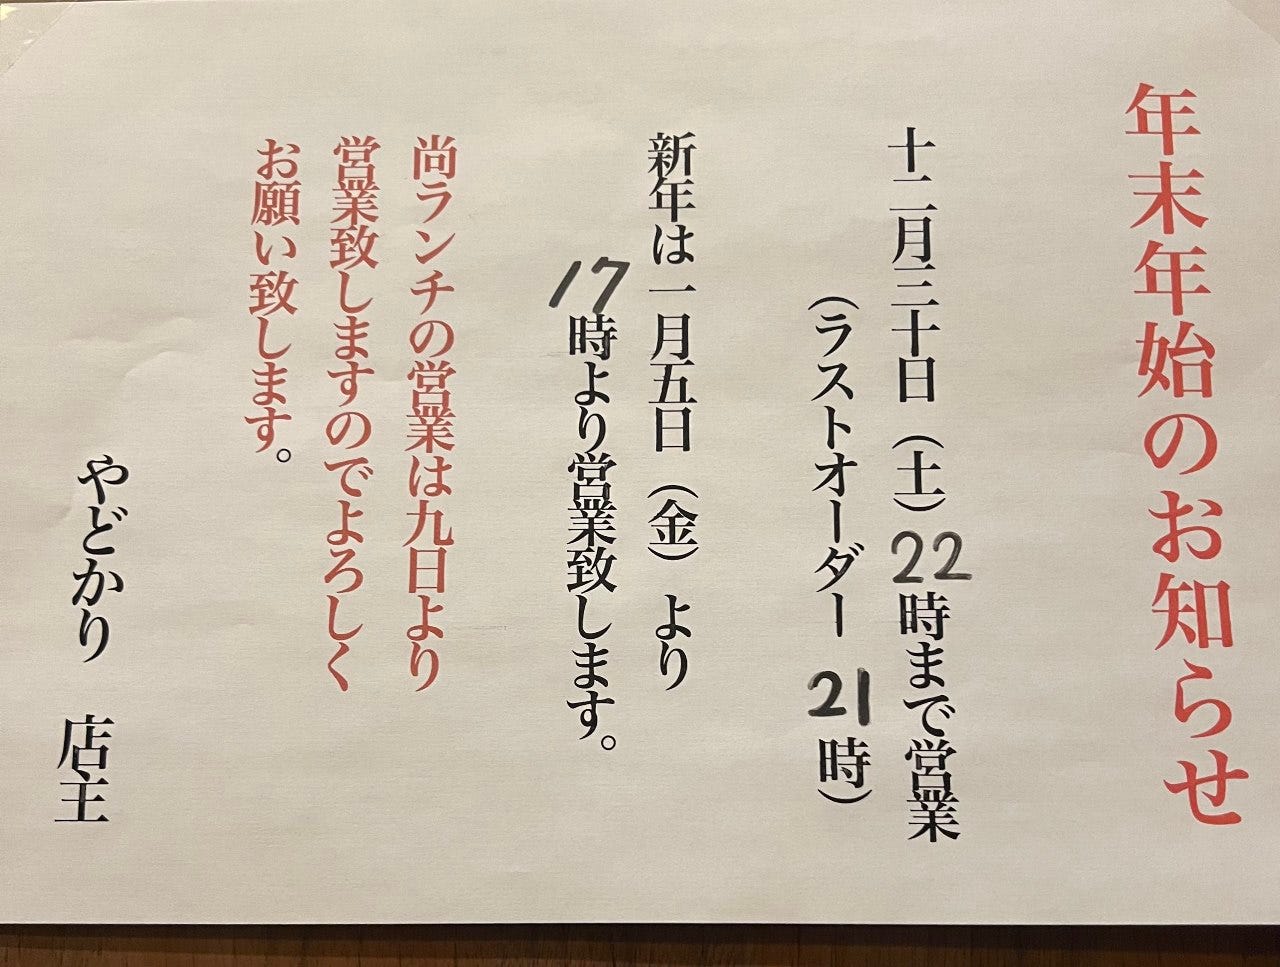 年末年始のお知らせ
十二月三十日（土）22時まで営業
（ラストオーダー 21時）
新年は一月五日（金）より
17時より営業致します。
尚ランチの営業は九日より
営業致しますのでよろしく
お願い致します。
やどかり 店主